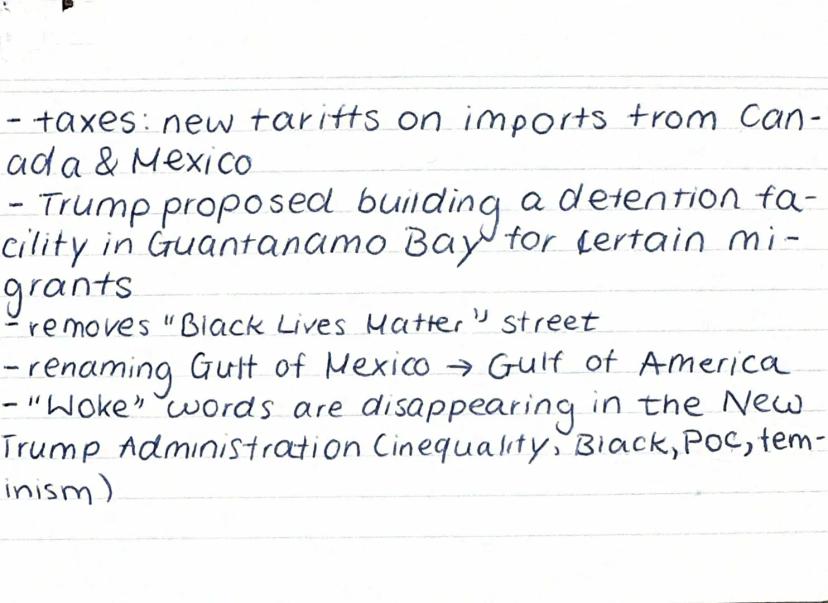 - taxes: new tariffs on imports from Can-
ada & Mexico
- Trump proposed building a detention fa-
cility in Guantanamo Bay for certain mi-
grants
- removes "Black Lives Matter" street
- renaming Gulf of Mexico → Gulf of America
- "Woke" words are disappearing in the New
Trump Administration (inequality, Black, Poc, fem-
inism)